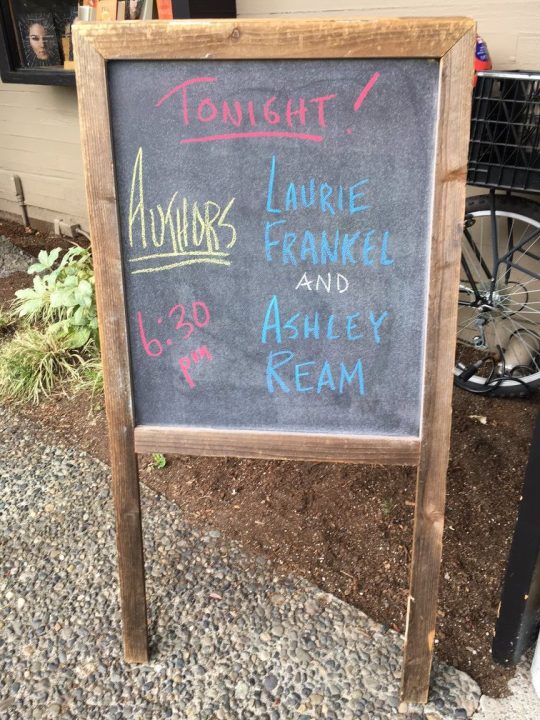 TONIGHT!
AUTHORS
6:30
pm
LAURIE
FRANKEL
AND
ASHLEY
REAM